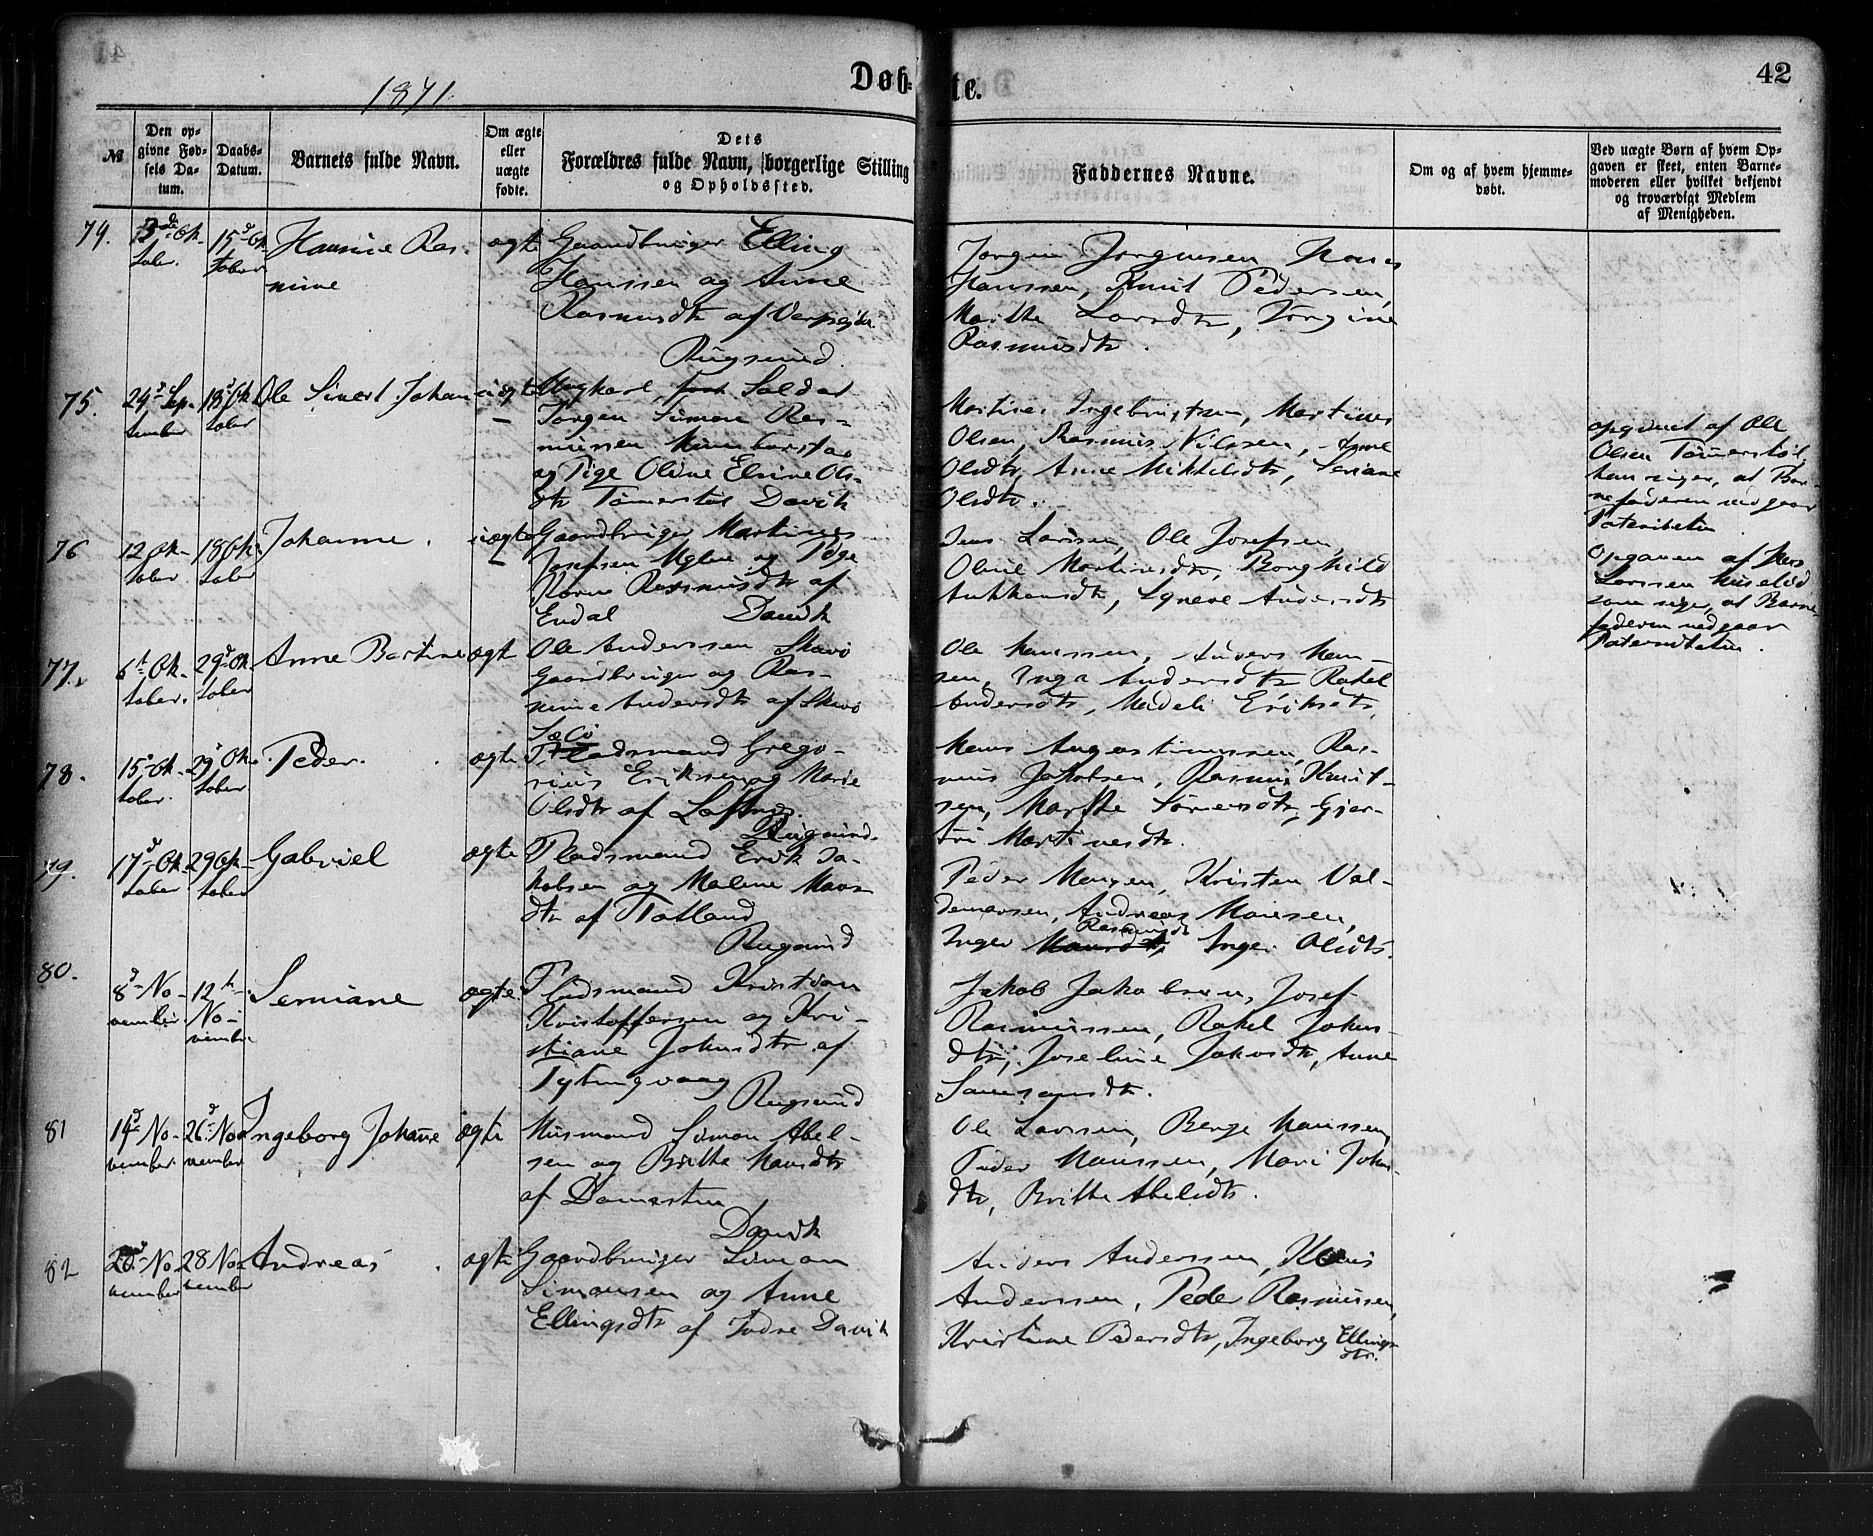 42
1871.
Døbte.
№
Den opgivne Fødsels Datum.
Daabs-Datum.
Barnets fulde Navn.
Om ægte eller uægte fødte.
Dets Forældres fulde Navn, borgerlige Stilling og Opholdssted.
Faddernes Navne.
Om og af hvem hjemmedøbt.
Ved uægte Børn af hvem Opgaven er skeet, enten Barnemoderen eller hvilket bekjendt og troværdigt Medlem af Menigheden.
74.
Ok-
tober.
15d Ok
tober
Hansine Ras-
mine
ægte
Gaardbruger Elling
Hanssen og Anne
Rasmusdtr af
Rugsund
Jørgen Jørgensen, Hans
Hanssen, Knut Pedersen,
Marthe Larsdtr, Jørgine
Rasmusdtr.
75.
24d Sep-
tember
18d Ok
tober
Ole Sivert Johan
uægte
Ungkarl, Soldat
Jørgen Simon Ras-
mussen
og Pige Oline Elsine Ols-
dtr Davik
Martines Ingebrigtsen, Martines
Olsen, Rasmus Nilssen, Anne
Olsdtr, Anne Mikkelsdtr, Seriane
Olsdtr.
opgivet af Ole
Olsen
han siger, at Bar-
nefaderen vedgaar
Paterniteten
76
12 Ok-
tober.
18 Ok
tober
Johanne.
uægte
Gaardbruger Martines
Josefsen og Pige
Rasmusdtr af
Endal Davik
Jens Larsen, Ole Josefsen,
Oline Martinesdtr, Borghild
Andersdtr
Opgaven af
Larssen
som siger, at Barne-
faderen vedgaar
Paterniteten.
77.
6t Ok-
tober.
29d Ok
tober
Anne Bertine
ægte
Ole Anderssen
Gaardbruger og Ras-
mine Andersdtr af
Ole Hanssen, Anders Han-
sen, Inga Andersdtr, Rakel
Andersdtr, Eriksdtr,
78.
15d Ok-
tober.
29d Ok
tober
Peder.
ægte
Pladsmand Grego-
rius Eriksen og Marie
Olsdtr af
Rugsund.
Hans Augustinussen, Ras-
mus Jakobsen, Rasmus Knut-
sen, Marthe Sørensdtr, Gjer-
tri Martinesdtr.
79.
17d Ok
tober
29 Ok-
tober
Gabriel
ægte
Pladsmand Erik Ja-
kobsen og Malene Hans-
dtr af Totland
Rugsund
Peder Monsen, Kristen Val-
demarsen, Andreas Hansen,
Inger Rasmusdtr, Inger Olsdtr.
80.
8d No-
vember
12t
No-
vember
Semiane
ægte
Pladsmand Kristian
Kristoffersen og Kri-
stiane Johnsdtr af
Tytingvaag
Rugsund
Jakob Jakobsen, Josef
Rasmussen, Rakel Johns-
dtr, Joseline Johnsdtr, Anne
81
14d No-
vember.
26d No
vember
Ingeborg Johanne
ægte
Husmand Simon Abel-
sen og Brithe Hansdtr
af Domesten
Davik
Ole Larssen, Berge Hanssen,
Peder Hanssen, Mari Johns-
dtr, Brithe Abelsdtr.
82
No-
vember
28 No
vember
Andreas.
ægte
Gaardbruger Simon
Simonsen og Anne
Ellingsdtr af Indre Davik
Anders Anderssen, Hans
Anderssen, Peder Rasmussen,
Kristine Pedersdtr, Ingeborg Ellings-
dtr.